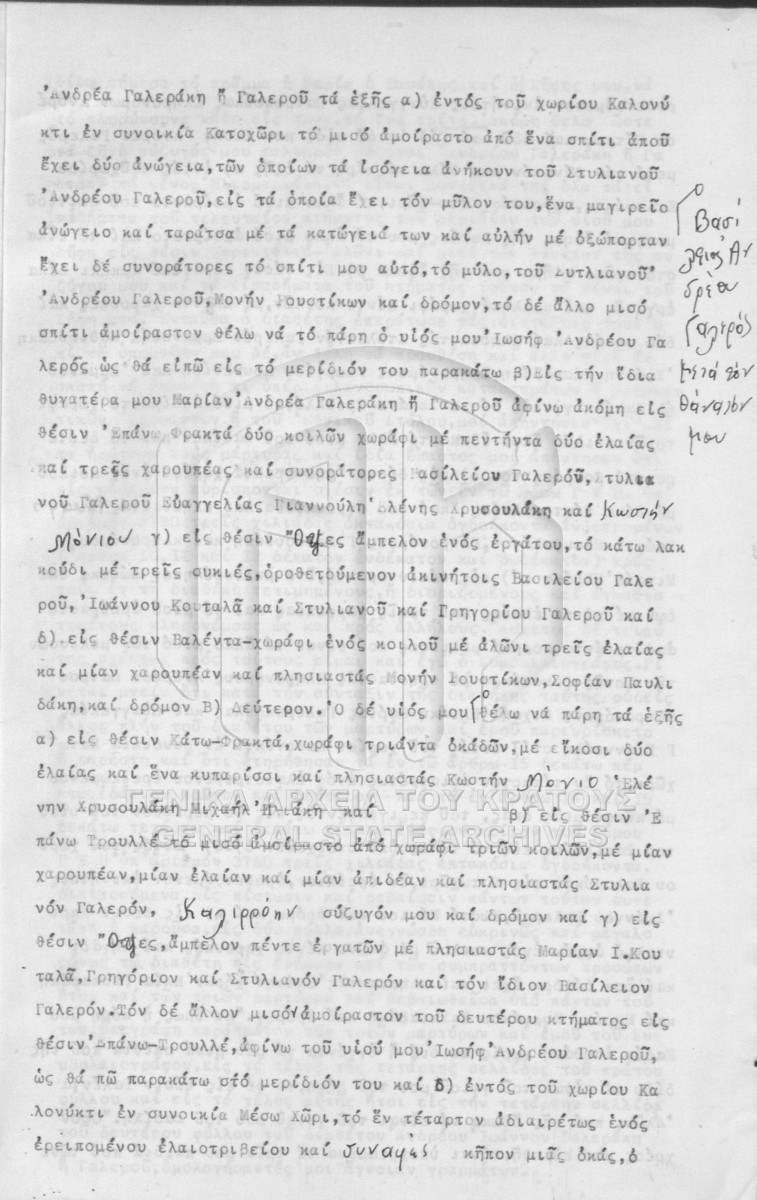 Ἀνδρέα Γαλεράκη ἤ Γαλεροῦ τά ἑξῆς α) ἐντός τοῦ χωρίου Καλονύ
κτι ἐν συνοικία Κατοχῶρι τό μισό ἀμοίραστο ἀπό ἕνα σπίτι ἀπού
ἔχει δύο ἀνώγεια,τῶν ὁποίων τά ἰσόγεια ἀνήκουν τοῦ Στυλιανοῦ
Ἀνδρέου Γαλεροῦ,εἰς τά ὁποῖα ἔχει τόν μῦλον του,ἕνα μαγιρεῖο
ἀνώγειο καί ταράτσα μέ τά κατώγειά των καί αὐλήν μέ ὀξώπορταν
ἔχει δέ συνοράτορες τό σπίτι μου αὐτό,τό μύλο,τοῦ Συτλιανοῦ
Ἀνδρέου Γαλεροῦ,Μονήν Ρουστίκων καί δρόμον,τό δέ ἄλλο μισό
σπίτι ἀμοίραστον θέλω νά τό πάρη ὁ υἱός μου Ἰωσήφ Ἀνδρέου Γα
λερός ὡς θά εἰπῶ εἰς τό μερίδιόν του παρακάτω β)Εἰς τήν ἴδια
θυγατέρα μου Μαρίαν Ἀνδρέα Γαλεράκη ἤ Γαλεροῦ ἀφίνω ἀκόμη εἰς
θέσιν Ἐπάνω Φρακτά δύο κοιλῶν χωράφι μέ πεντήντα δύο ἐλαίας
καί τρεῖς χαρουπέας καί συνοράτορες Βασιλείου Γαλεροῦ, Στυλια
νοῦ Γαλεροῦ Εὐαγγελίας Γιαννούλη Ἑλένης Χρυσουλάκη καί Κωστῆν
Μόνιου γ) εἰς θέσιν ἄμπελον ἑνός ἐργάτου,τό κάτω λακ
κούδι μέ τρεῖς συκιές,ὁροθετούμενον ἀκινήτοις Βασιλείου Γαλε
ροῦ, Ἰωάννου Κουταλᾶ καί Στυλιανοῦ καί Γρηγορίου Γαλεροῦ καί
δ).εἰς θέσιν Βαλέντα-χωράφι ἑνός κοιλοῦ μέ ἁλῶνι τρεῖς ἐλαίας
καί μίαν χαρουπέαν καί πλησιαστάς Μονήν Ρουστίκων,Σοφίαν Παυλι
δάκη,καί δρόμον Β) Δεύτερον.Ὁ δέ υἱός μου θέλω νά πάρη τά ἑξῆς
α) εἰς θέσιν Κάτω-Φρακτά,χωράφι τριάντα ὀκάδῶν,μέ εἴκοσι δύο
ἐλαίας καί ἕνα κυπαρίσσι καί πλησιαστάς Κωστήν Μόνιο Ἑλέ
νην Χρυσουλάκη Μιχαήλ Ἠλιάκη καί β) εἰς θέσιν Ἐ
πάνω Τρουλλέ τό μισό ἀμοίραστο ἀπό χωράφι τριῶν κοιλῶν,μέ μίαν
χαρουπέαν,μίαν ἐλαίαν καί μίαν ἀπιδέαν καί πλησιαστάς Στυλια
νόν Γαλερόν, Καλιρρόην σύζυγόν μου καί δρόμον καί γ) εἰς
θέσιν ἄμπελον πέντε ἐργατῶν μέ πλησιαστάς Μαρίαν Ι.Κου
ταλᾶ,Γρηγόριον καί Στυλιανόν Γαλερόν καί τόν ἴδιον Βασίλειον
Γαλερόν.Τόν δέ ἄλλον μισόν ἀμοίραστον τοῦ δευτέρου κτήματος εἰς
θέσιν Ἐπάνω-Τρουλλέ,ἀφίνω τοῦ υἱοῦ μου Ἰωσήφ Ἀνδρέου Γαλεροῦ,
ὡς θά πῶ παρακάτω στό μερίδιόν του καί δ) ἐντός τοῦ χωρίου Κα
λονύκτι ἐν συνοικία Μέσω Χῶρι,τό ἕν τέταρτον ἀδιαιρέτως ἑνός
ἐρειπομένου ἐλαιοτριβείου καί συναφές κῆπον μιᾶς ὀκάς,ὁ
ὁ Βασί
λειος Ἀν
δρέου
Γαλερός
μετά τόν
θάνατον
μου
ΓΕΝΙΚΑ ΑΡΧΕΙΑ ΤΟΥ ΚΡΑΤΟΥΣ
GENERAL STATE ARCHIVES